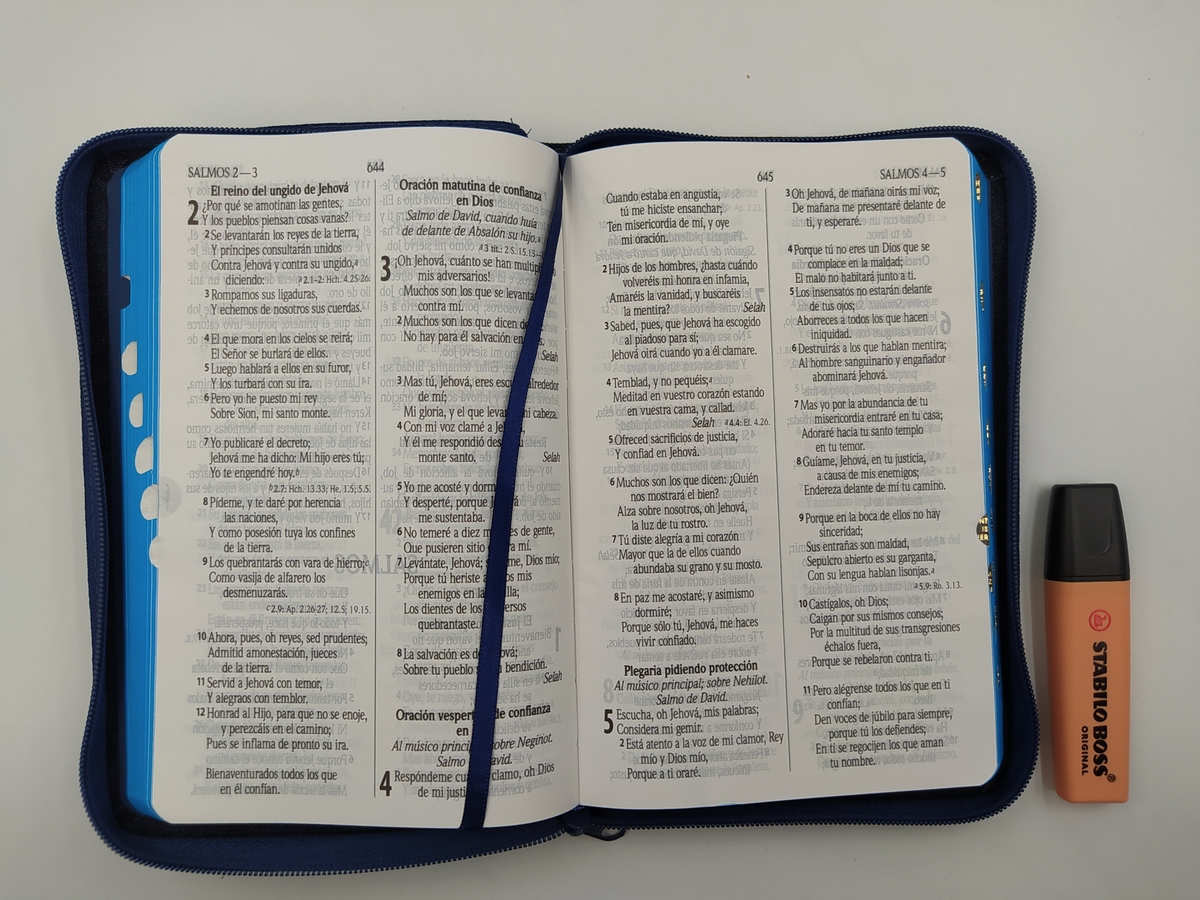 SALMOS 2—3
644
El reino del ungido de Jehová
2 ¿Por qué se amotinan las gentes,
Y los pueblos piensan cosas vanas?
2 Se levantarán los reyes de la tierra,
Y príncipes consultarán unidos
Contra Jehová y contra su ungido,a
diciendo: a 2.1-2: Hch. 4.25-26.
3 Rompamos sus ligaduras,
Y echemos de nosotros sus cuerdas.
4 El que mora en los cielos se reirá;
El Señor se burlará de ellos.
5 Luego hablará a ellos en su furor,
Y los turbará con su ira.
6 Pero yo he puesto mi rey
Sobre Sion, mi santo monte.
7 Yo publicaré el decreto;
Jehová me ha dicho: Mi hijo eres tú;
Yo te engendré hoy.b
b 2.7: Hch. 13.33; He. 1.5; 5.5.
8 Pídeme, y te daré por herencia
las naciones,
Y como posesión tuya los confines
de la tierra.
9 Los quebrantarás con vara de hierro;c
Como vasija de alfarero los
desmenuzarás.
c 2.9: Ap. 2.26-27; 12.5; 19.15.
10 Ahora, pues, oh reyes, sed prudentes;
Admitid amonestación, jueces
de la tierra.
11 Servid a Jehová con temor,
Y alegraos con temblor.
12 Honrad al Hijo, para que no se enoje,
y perezcáis en el camino;
Pues se inflama de pronto su ira.
Bienaventurados todos los que
en él confían.
Oración matutina de confianza
en Dios
Salmo de David, cuando huía
de delante de Absalón su hijo.a
a 3 tít.: 2 S. 15.13—
3 ¡Oh Jehová, cuánto se han
mis adversarios!
Muchos son los que se
contra mí.
2 Muchos son los que dicen de
No hay para él salvación en
Selah
3 Mas tú, Jehová, eres alrededor
de mí;
Mi gloria, y el que mi cabeza.
4 Con mi voz clamé a
Y él me respondió
monte santo. Selah
5 Yo me acosté y
Y desperté, porque
me sustentaba.
6 No temeré a diez de gente,
Que pusieren sitio mí.
7 Levántate, Jehová; Dios mío;
Porque tú heriste a mis
enemigos en la
Los dientes de los
quebrantaste.
8 La salvación es de
Sobre tu pueblo bendición.
Selah
Oración de confianza
en
Al músico sobre Neginot.
Salmo
4 Respóndeme clamo, oh Dios
de mi
645
SALMOS 4—5
Cuando estaba en angustia,
tú me hiciste ensanchar;
Ten misericordia de mí, y oye
mi oración.
2 Hijos de los hombres, ¿hasta cuándo
volveréis mi honra en infamia,
Amaréis la vanidad, y buscaréis
la mentira? Selah
3 Sabed, pues, que Jehová ha escogido
al piadoso para sí;
Jehová oirá cuando yo a él clamare.
4 Temblad, y no pequéis;a
Meditad en vuestro corazón estando
en vuestra cama, y callad.
Selah a 4.4: Ef. 4.26.
5 Ofreced sacrificios de justicia,
Y confiad en Jehová.
6 Muchos son los que dicen: ¿Quién
nos mostrará el bien?
Alza sobre nosotros, oh Jehová,
la luz de tu rostro.
7 Tú diste alegría a mi corazón
Mayor que la de ellos cuando
abundaba su grano y su mosto.
8 En paz me acostaré, y asimismo
dormiré;
Porque sólo tú, Jehová, me haces
vivir confiado.
Plegaria pidiendo protección
Al músico principal; sobre Nehilot.
Salmo de David.
5 Escucha, oh Jehová, mis palabras;
Considera mi gemir.
2 Está atento a la voz de mi clamor, Rey
mío y Dios mío,
Porque a ti oraré.
3 Oh Jehová, de mañana oirás mi voz;
De mañana me presentaré delante de
ti, y esperaré.
4 Porque tú no eres un Dios que se
complace en la maldad;
El malo no habitará junto a ti.
5 Los insensatos no estarán delante
de tus ojos;
Aborreces a todos los que hacen
iniquidad.
6 Destruirás a los que hablan mentira;
Al hombre sanguinario y engañador
abominará Jehová.
7 Mas yo por la abundancia de tu
misericordia entraré en tu casa;
Adoraré hacia tu santo templo
en tu temor.
8 Guíame, Jehová, en tu justicia,
a causa de mis enemigos;
Endereza delante de mí tu camino.
9 Porque en la boca de ellos no hay
sinceridad;
Sus entrañas son maldad,
Sepulcro abierto es su garganta,
Con su lengua hablan lisonjas.a
a 5.9: Ro. 3.13.
10 Castígalos, oh Dios;
Caigan por sus mismos consejos;
Por la multitud de sus transgresiones
échalos fuera,
Porque se rebelaron contra ti.
11 Pero alégrense todos los que en ti
confían;
Den voces de júbilo para siempre,
porque tú los defiendes;
En ti se regocijen los que aman
tu nombre.
STABILO BOSS®
ORIGINAL